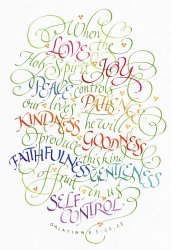 When the
LOVE JOY
Holy Spirit
PEACE controls
our lives PATIENCE
KINDNESS he will
produce GOODNESS
FAITHFULNESS this kind
of fruit in us GENTLENESS
SELF
CONTROL.
GALATIANS 5:22,23